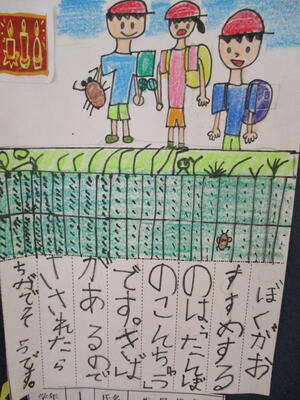 ぼくがお
すすめする
のは、たんぼ
のこんちゅう
です。きば
があるので
ささされたら
ちがでそうです。
学年
氏名